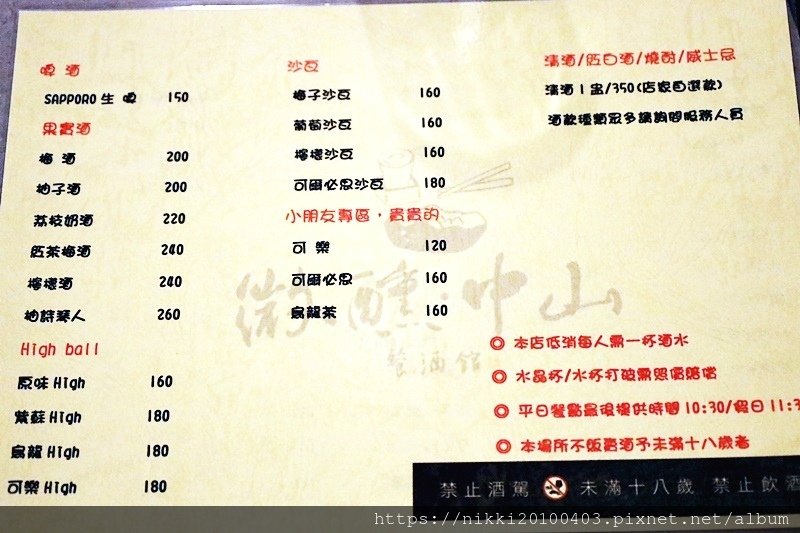 啤酒
SAPPORO 生啤 150
果實酒
梅酒 200
柚子酒 200
荔枝奶酒 220
紅茶梅酒 240
檸檬酒 240
柚詩琴人 260
High ball
原味High 160
紫蘇High 180
烏龍High 180
可樂High 180
沙瓦
梅子沙瓦 160
葡萄沙瓦 160
檸檬沙瓦 160
可爾必思沙瓦 180
小朋友專區,貴貴的
可樂 120
可爾必思 160
烏龍茶 160
清酒/紅白酒/燒酎/威士忌
清酒1盅/350(店家自選款)
酒款種類眾多請詢問服務人員
微醺.中山
餐酒館
◎ 本店低消每人需一杯酒水
◎ 水晶杯/水杯打破需照價賠償
◎ 平日餐點最晚提供時間10:30/假日11:3
◎ 本場所不販賣酒予未滿十八歲者
禁止酒駕 未滿十八歲 禁止飲酒
https://nikki20100403.pixnet.net/album